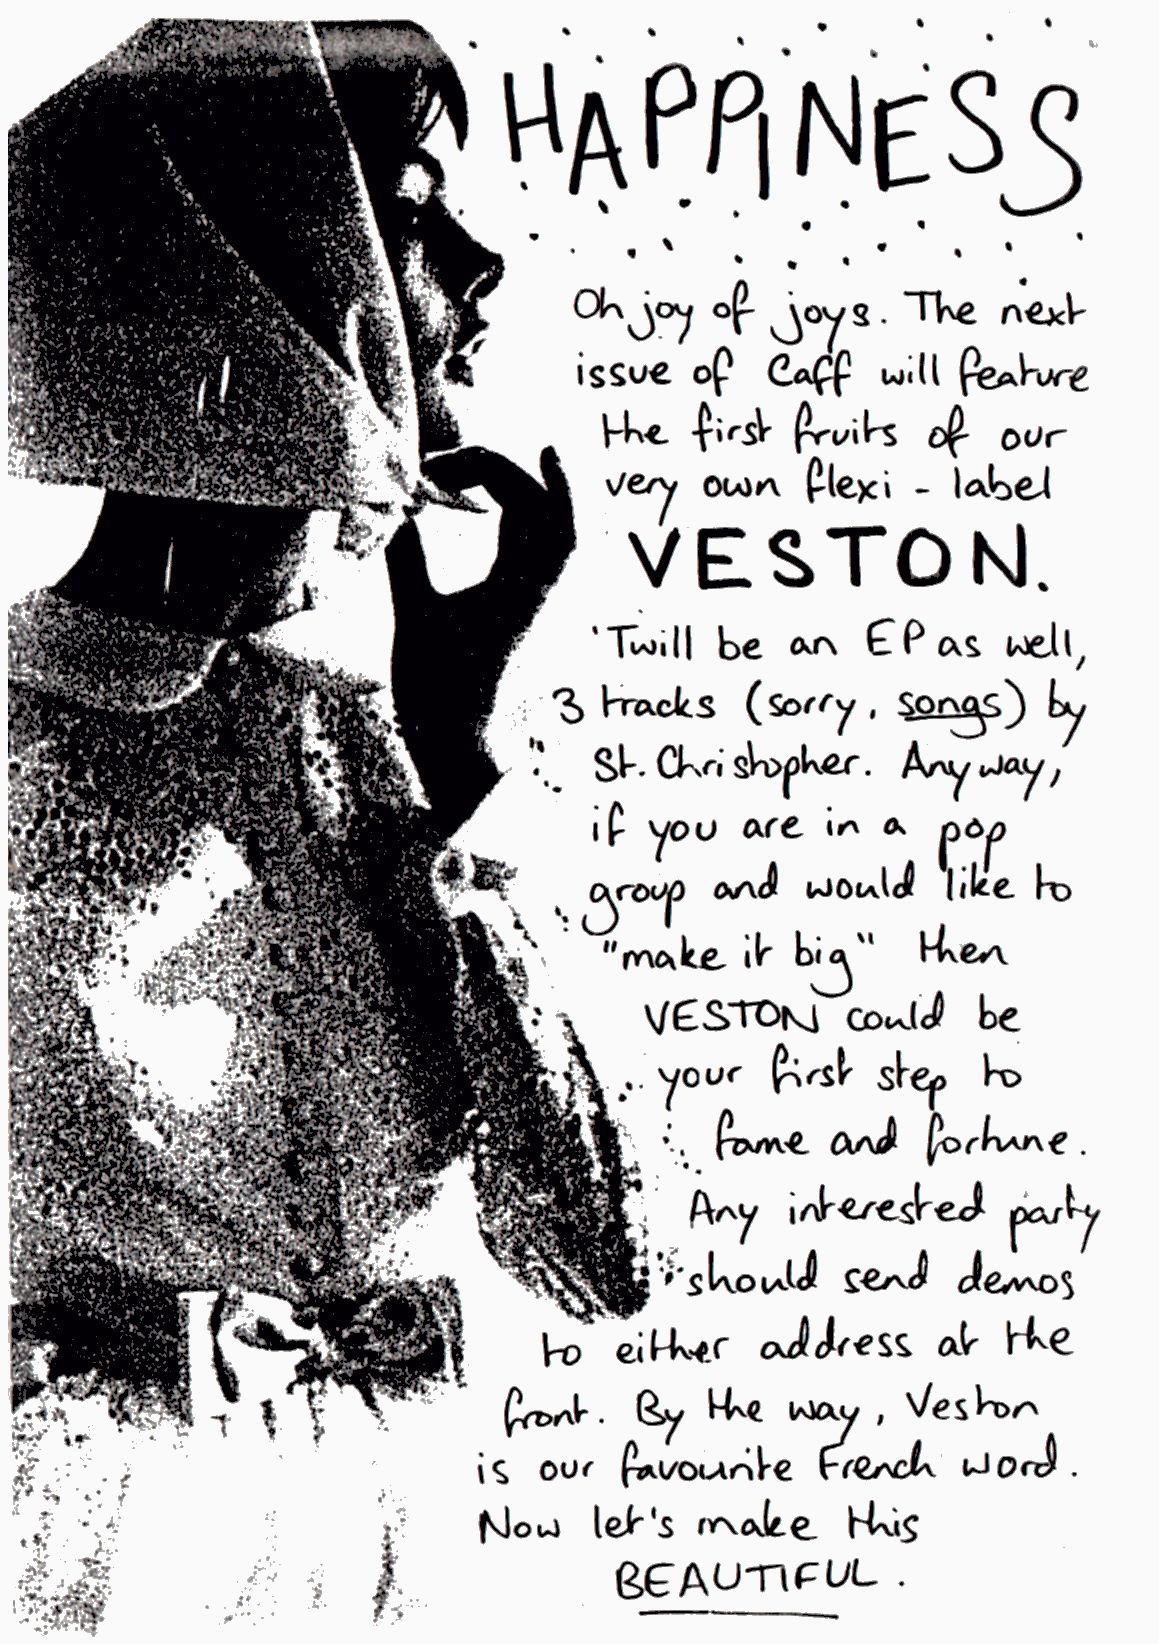 HAPPINESS
Oh joy of joys. The next
issue of Caff will feature
the first fruits of our
very own flexi - label
VESTON.
'Twill be an EP as well,
3 tracks (sorry, songs) by
St. Christopher. Anyway,
if you are in a pop
group and would like to
"make it big" then
VESTON could be
your first step to
fame and fortune.
Any interested party
should send demos
to either address at the
front. By the way, Veston
is our favourite French word.
Now let's make this
BEAUTIFUL.